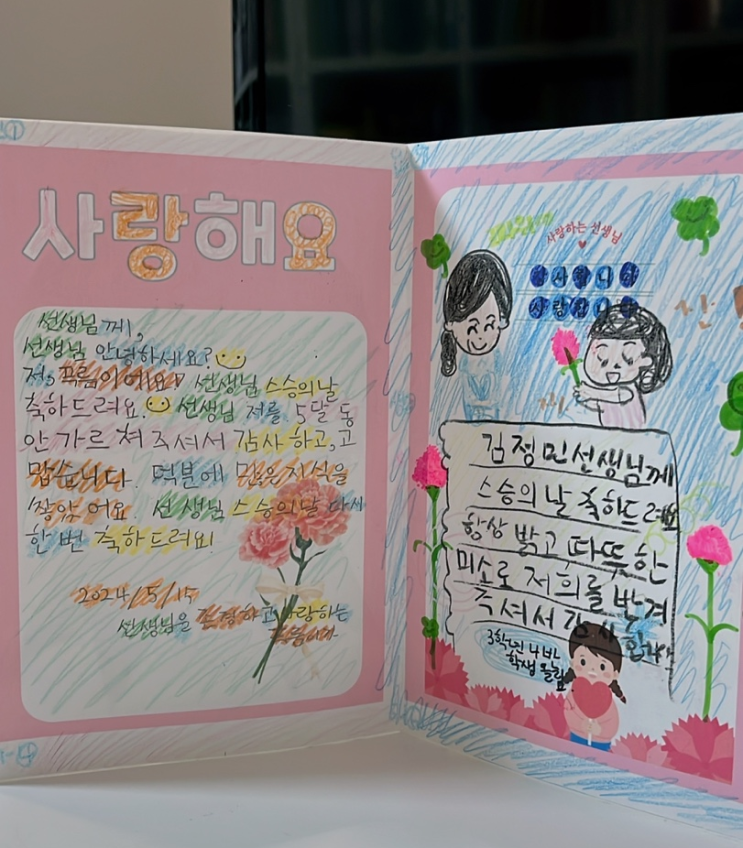 사랑해요
선생님께,
선생님 안녕하세요?
저, 푸름이에요♥ 선생님 스승의날
축하드려요. 선생님 저를 5달 동
안 가르쳐 주셔서 감사하고, 고
맙습니다. 덕분에 많은지식을
쌓았어요 선생님 스승의날 다시
한 번 축하드려요!
2024/5/15
선생님을 존경하고 사랑하는
사랑하는 선생님
감사합니다
사랑합니다
김정민선생님께
스승의 날 축하드려요
항상 밝고 따뜻한
미소로 저희를 반겨
주셔서 감사합니다
3학년 4반
학생 올림